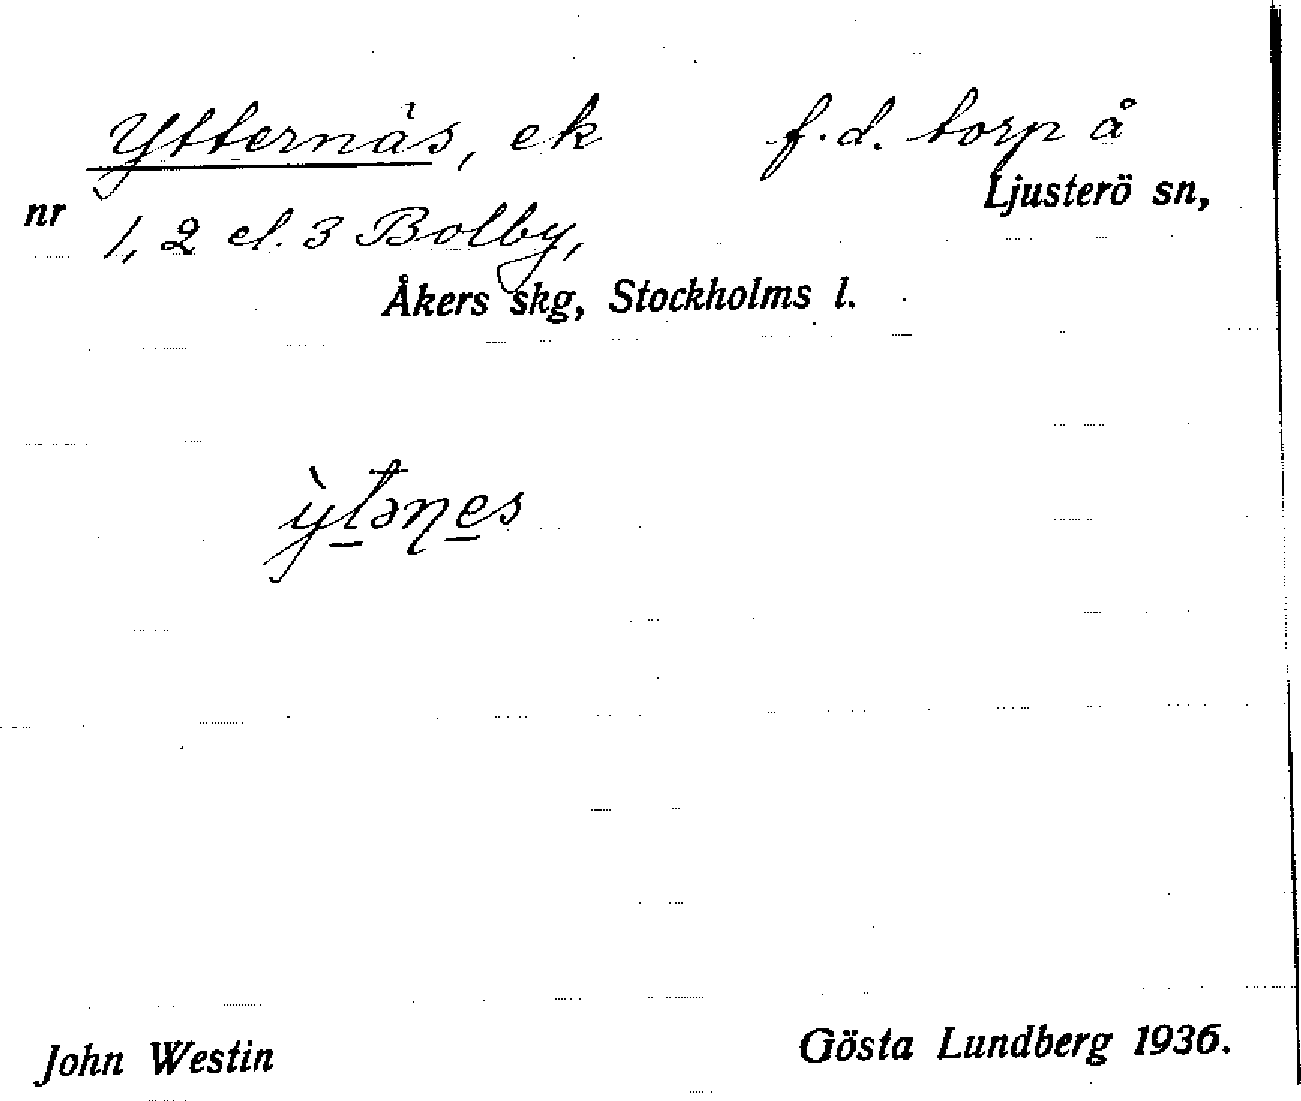 Ytternäs, ek f.d. torp å
Ljusterö sn,
nr 1, 2 el. 3 Bolby,
Åkers skg, Stockholms l.
ỳt̲əηe̲s
John Westin Gösta Lundberg 1936.